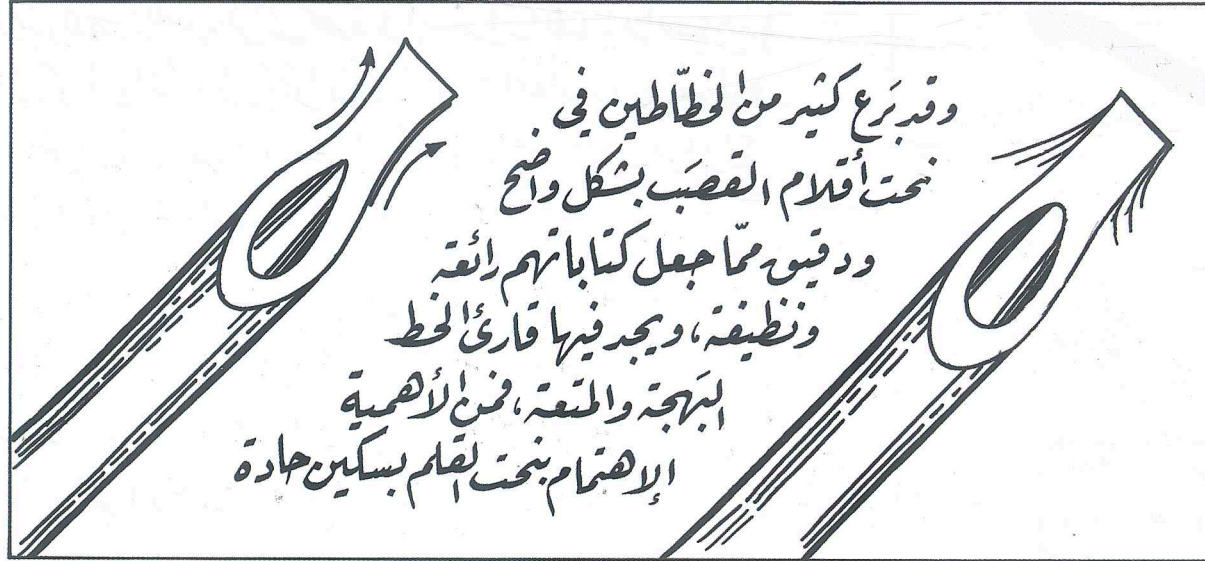 وقد بَرَع كثير من الخطّاطين في
نحت أقلام القصَب بشكل واضح
ودقيق ممّا جعل كتاباتهم رائعة
ونظيفة، ويجد فيها قارئ الخط
البَهجة والمتعة، فمن الأهمية
الإهتمام بنحت القلم بسكين حادة